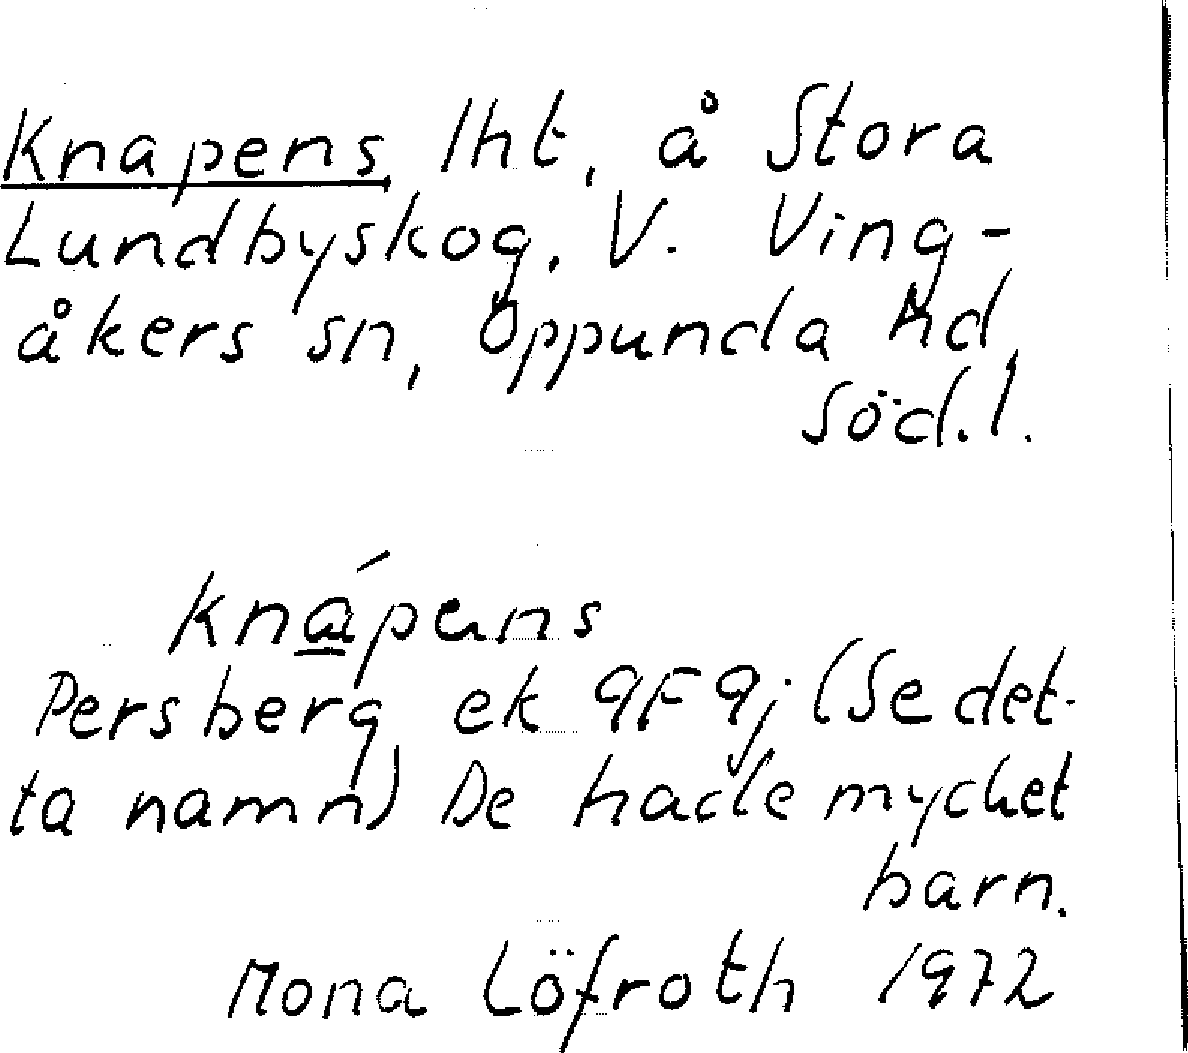 Knapens, lht, å Stora
Lundbyskog, V. Ving-
åkers sn, Oppunda hd,
Söd.l.
knápens
Persberg ek 9F 9j (Se det-
ta namn) De hade mycket
barn.
Mona Löfroth 1972